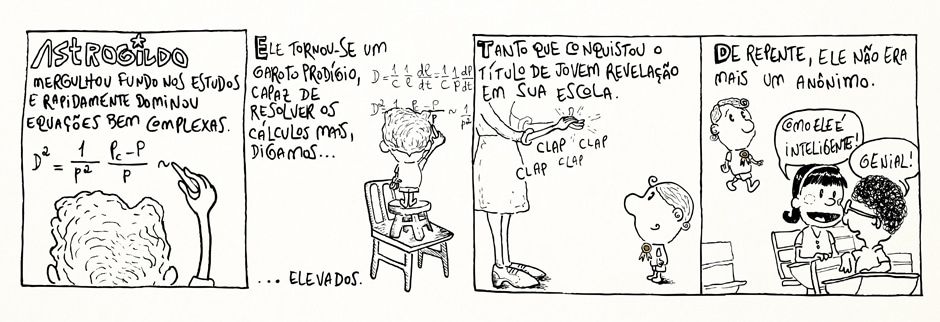 ASTROGILDO
MERGULHOU FUNDO NOS ESTUDOS
E RAPIDAMENTE DOMINOU
EQUAÇÕES BEM COMPLEXAS.
D² = 1/P² Pc-P/P ~
ELE TORNOU-SE UM
GAROTO PRODÍGIO,
CAPAZ DE
RESOLVER OS
CÁLCULOS MAIS,
DIGAMOS...
D = 1/C 1/ℓ dℓ/dt = 1/C 1/P dP/dt
D² 1/P² Pc-P/P ~ 1/P²
... ELEVADOS.
TANTO QUE CONQUISTOU O
TÍTULO DE JOVEM REVELAÇÃO
EM SUA ESCOLA.
CLAP CLAP
CLAP CLAP
DE REPENTE, ELE NÃO ERA
MAIS UM ANÔNIMO.
COMO ELE É
INTELIGENTE!
GENIAL!